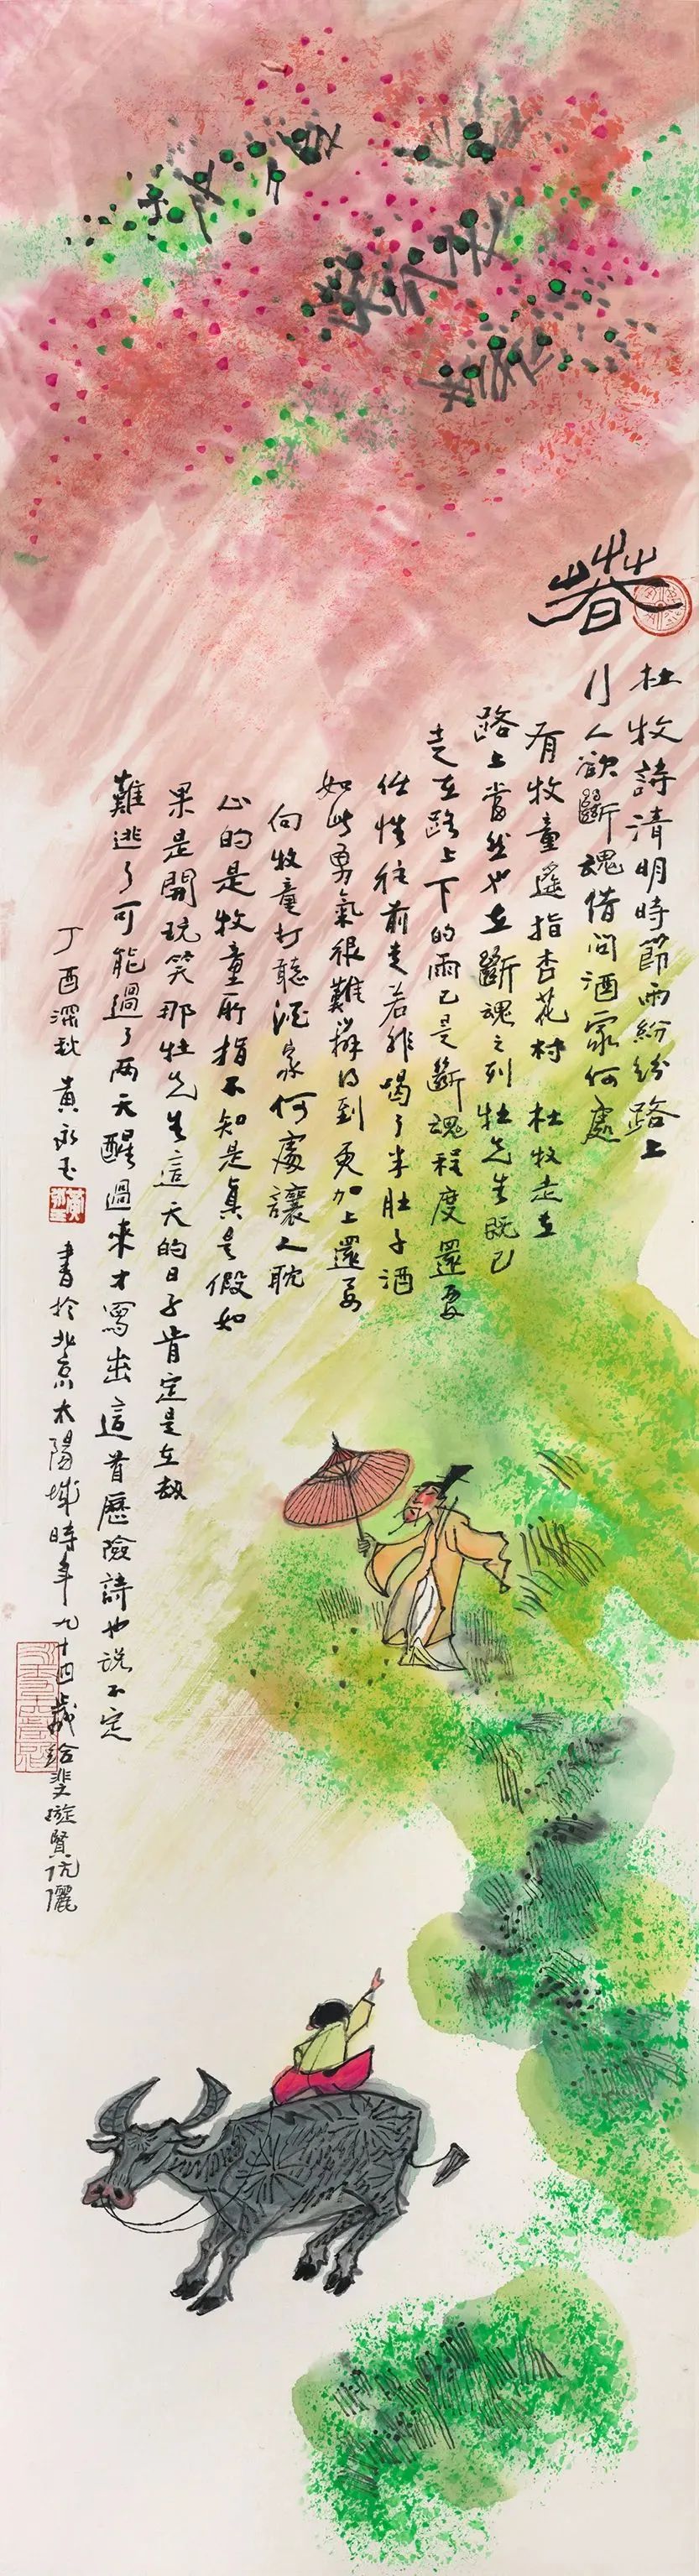 春
杜牧詩清明時節雨紛紛路上
行人欲斷魂借问酒家何處
有牧童遥指杏花村 杜牧走在
路上當然也在斷魂之列杜先生既已
走在路上下的雨已是斷魂程度還要
任性往前走若非喝了半肚子酒
如此勇氣很難辦得到更加上還要
向牧童打聽酒家何處讓人耽
心的是牧童所指不知是真是假如
果是開玩笑那杜先生這天的日子肯定是在劫
難逃了可能過了两天醒過來才寫出這首歷險詩也说不定
丁酉深秋 黄永玉 書於北京太陽城時年九十四歲给斐漩賢伉儷